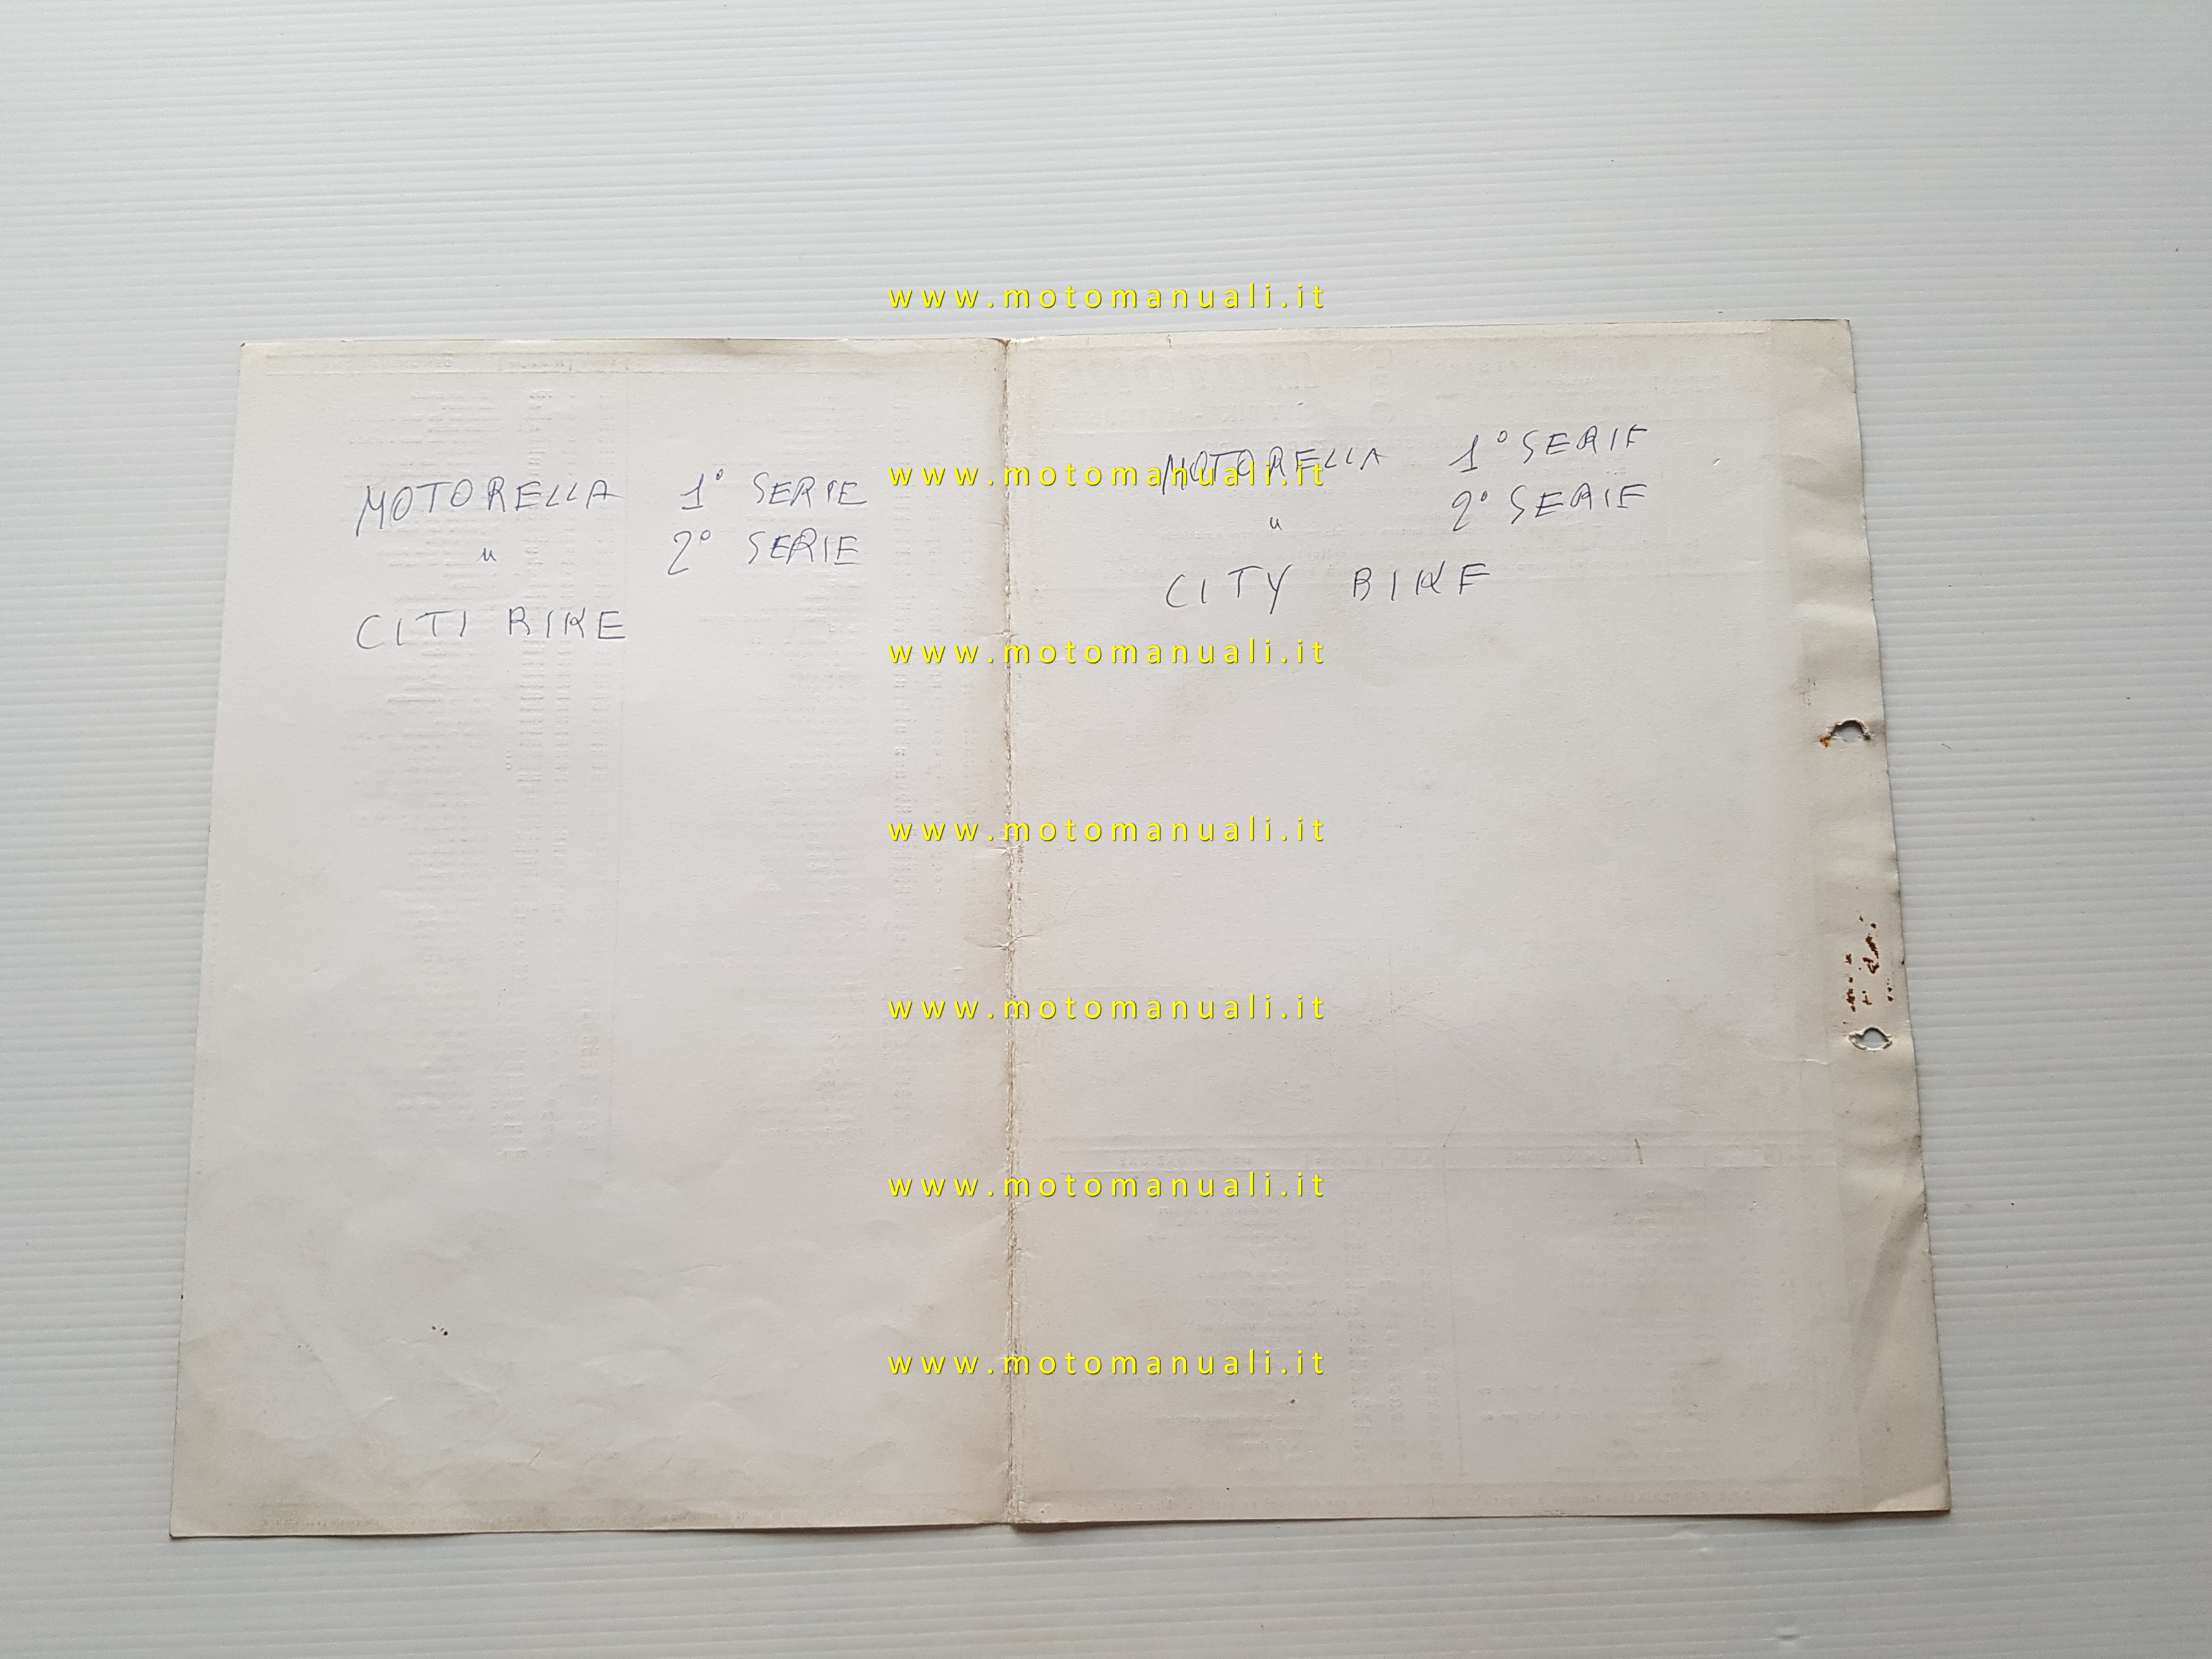 www.motomanuali.it
MOTORELLA 1° SERIE
" 2° SERIE
CITI BIKE
www.motomanuali.it
MOTORELLA 1° SERIE
" 2° SERIE
CITY BIKE
www.motomanuali.it
www.motomanuali.it
www.motomanuali.it
www.motomanuali.it
www.motomanuali.it